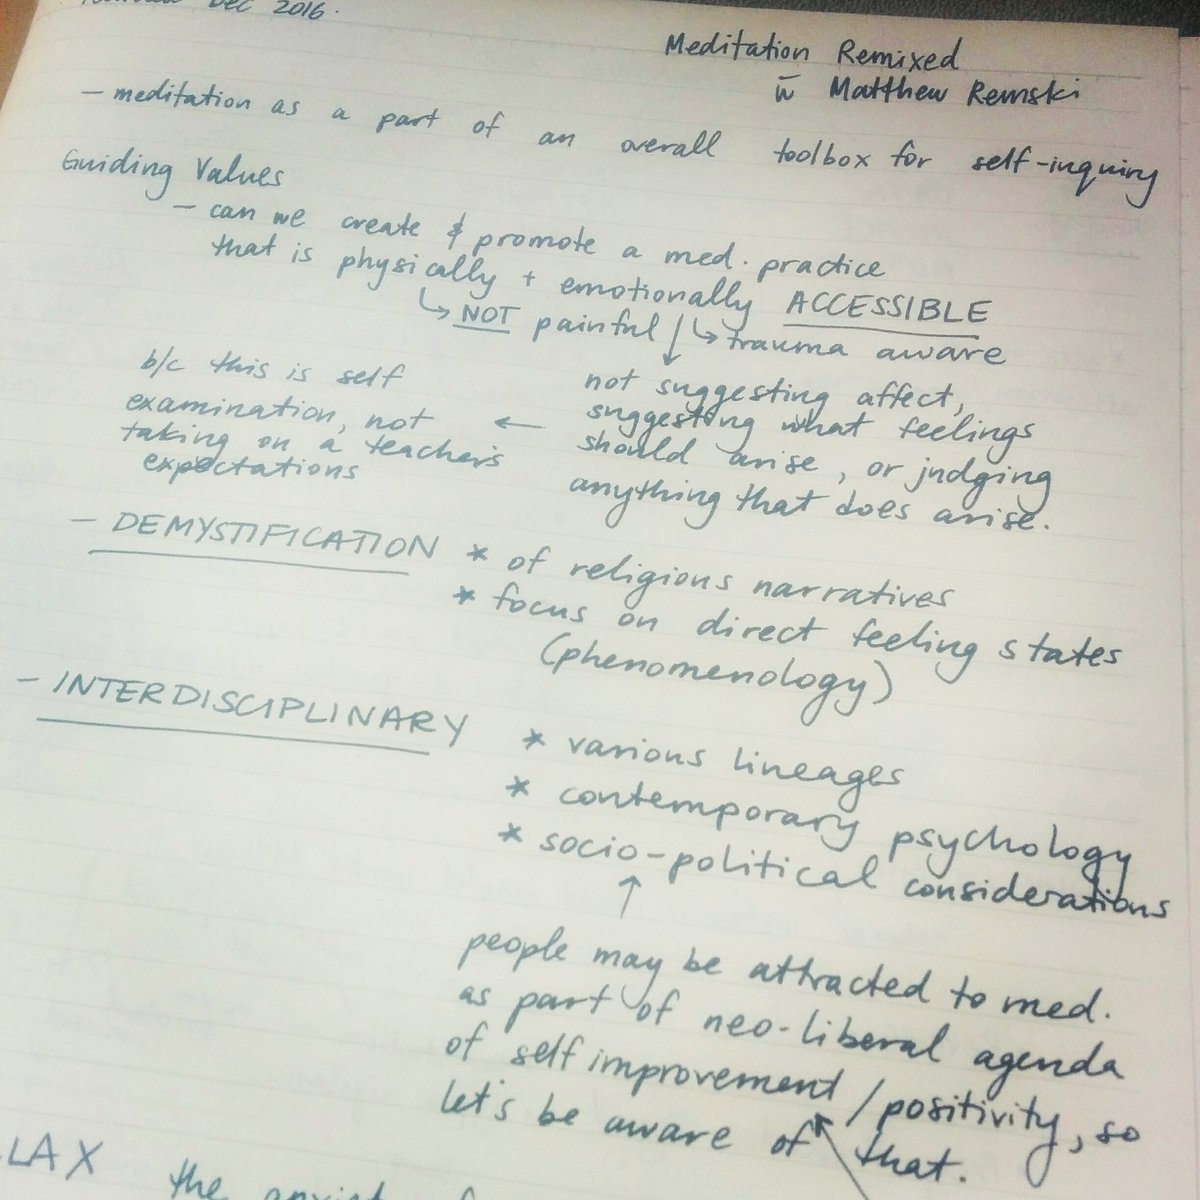 Dec 2016.
Meditation Remixed
w̄ Matthew Remski
– meditation as a part of an overall toolbox for self-inquiry
Guiding Values
– can we create & promote a med. practice
that is physically + emotionally ACCESSIBLE
↳ NOT painful ↓ ↳ trauma aware
not suggesting affect,
suggesting what feelings
should arise, or judging
anything that does arise.
←
b/c this is self
examination, not
taking on a teacher's
expectations
– DEMYSTIFICATION * of religious narratives
* focus on direct feeling states
(phenomenology)
– INTERDISCIPLINARY * various lineages
* contemporary psychology
* socio-political considerations
↑
people may be attracted to med.
as part of neo-liberal agenda
of self improvement/positivity, so
let's be aware of that.
LAX the